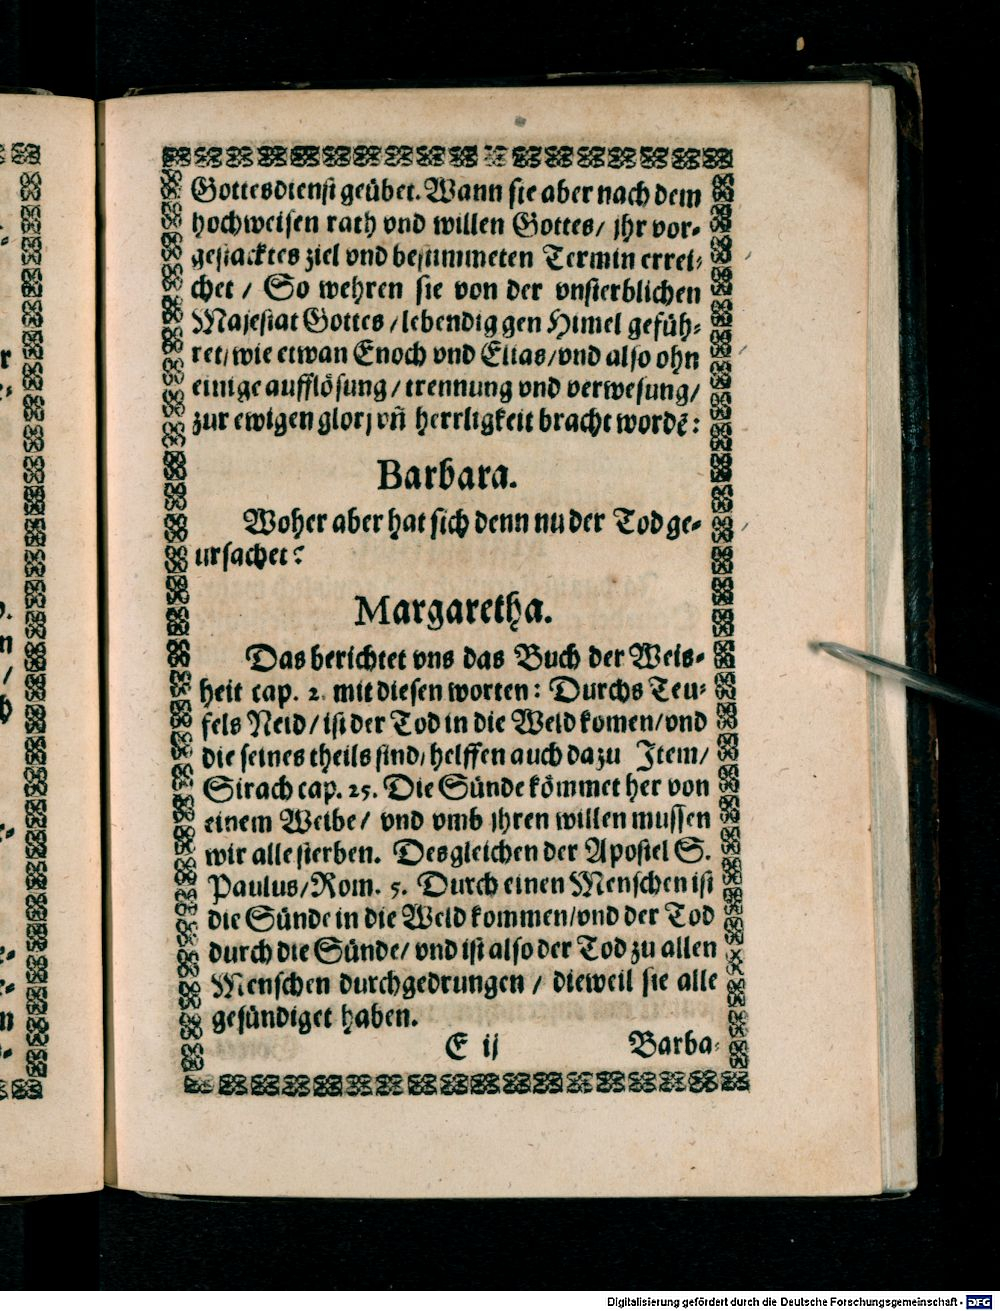 Gottesdienst geübet. Wann sie aber nach dem
hochweisen rath vnd willen Gottes/ jhr vor-
gestacktes ziel vnd bestimmeten Termin errei-
chet / So wehren sie von der vnsterblichen
Majestat Gottes / lebendig gen Himel gefüh-
ret/ wie etwan Enoch vnd Elias/ vnd also ohn
einige aufflösung / trennung vnd verwesung/
zur ewigen glorj vñ herrligkeit bracht wordẽ:
Barbara.
Woher aber hat sich denn nu der Tod ge-
ursachet?
Margaretha.
Das berichtet vns das Buch der Weis-
heit cap. 2. mit diesen worten: Durchs Teu-
fels Neid/ ist der Tod in die Weld komen/ vnd
die seines theils sind/ helffen auch dazu Item/
Sirach cap. 25. Die Sünde kömmet her von
einem Weibe/ vnd vmb jhren willen mussen
wir alle sterben. Desgleichen der Apostel S.
Paulus/ Rom. 5. Durch einen Menschen ist
die Sünde in die Weld kommen/ vnd der Tod
durch die Sünde/ vnd ist also der Tod zu allen
Menschen durchgedrungen / dieweil sie alle
gesündiget haben.
E ij Barba-
Digitalisierung gefördert durch die Deutsche Forschungsgemeinschaft - DFG